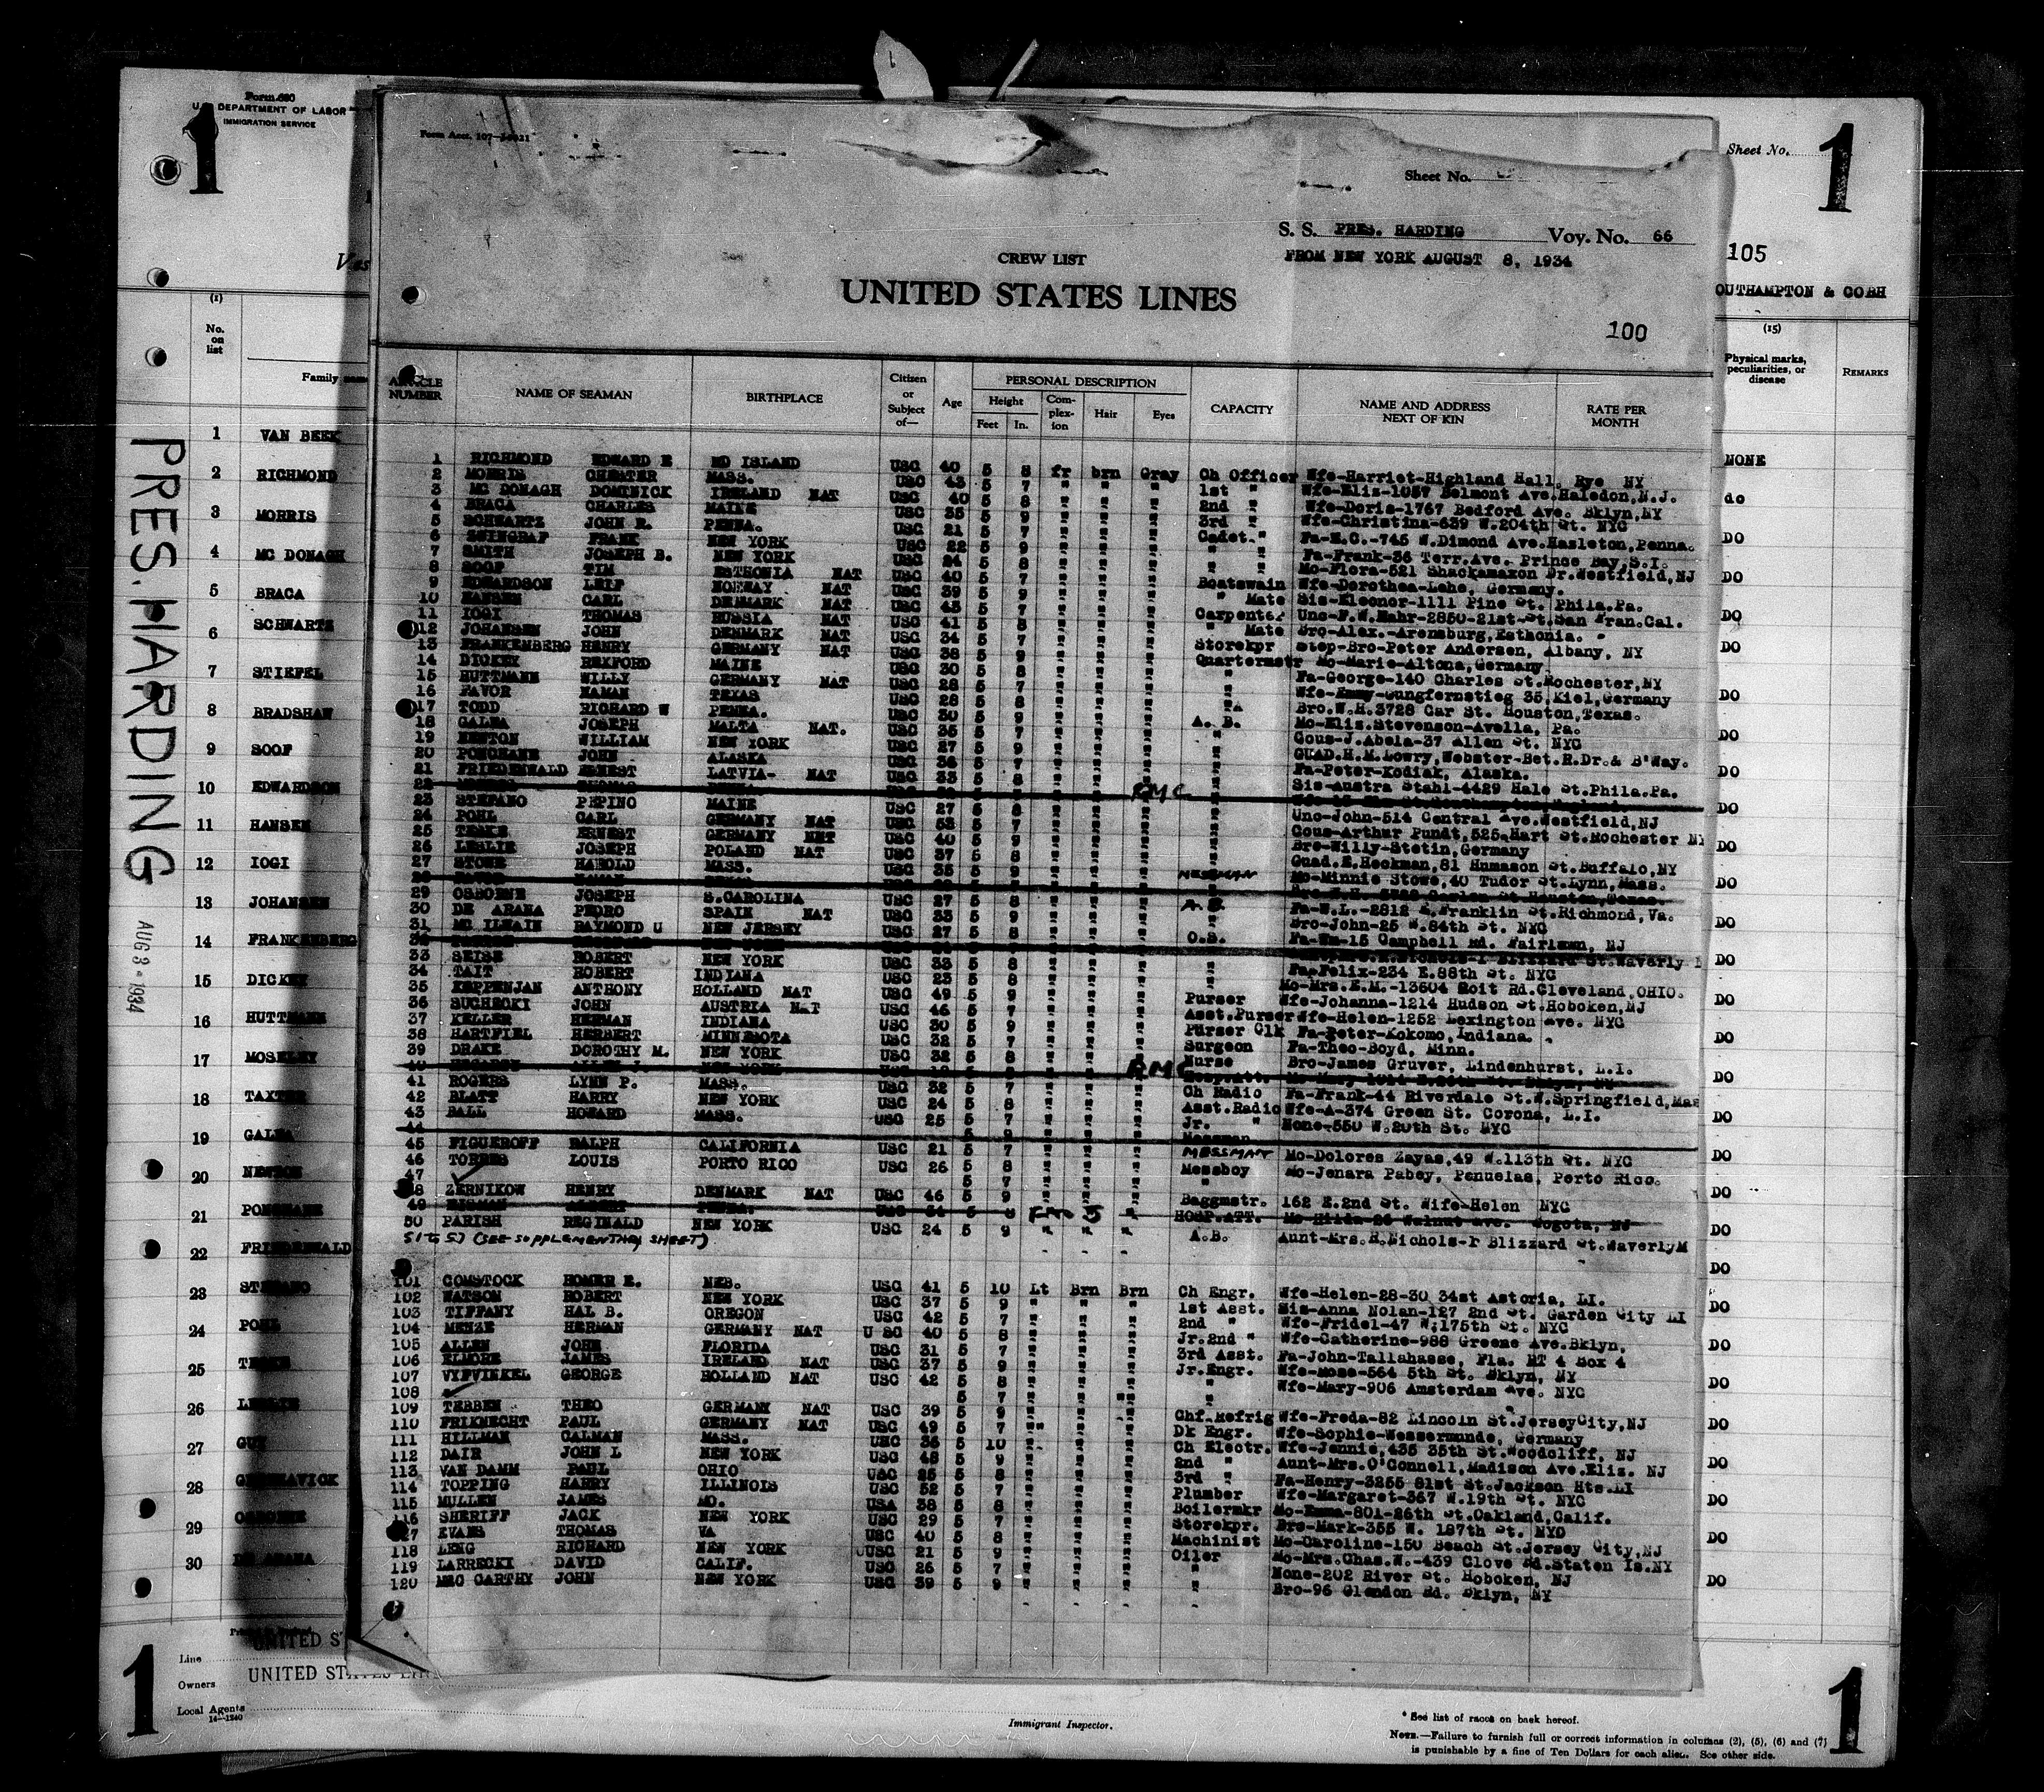 Form 680
U. S. DEPARTMENT OF LABOR
IMMIGRATION SERVICE
1
Sheet No. 1
Form Acct. 107
Sheet No.
S. S. PRES. HARDING Voy. No. 66
FROM NEW YORK AUGUST 8, 1934
CREW LIST
UNITED STATES LINES
100
105
OUTHAMPTON & COBH
(1)
No. on list
Family name
(15)
Physical marks, peculiarities, or disease
REMARKS
PRES. HARDING
AUG 8 - 1934
1 VAN BEEK NONE
2 RICHMOND do
3 MORRIS DO
4 MC DONAGH DO
5 BRACA DO
6 SCHWARTZ DO
7 STIEFEL DO
8 BRADSHAW DO
9 SOOF DO
10 EDWARDSON DO
11 HANSEN DO
12 IOGI DO
13 JOHANSEN DO
14 FRANKENBERG DO
15 DICKEY DO
16 HUTTMANN DO
17 MOSELEY DO
18 TAXTER DO
19 GALEA DO
20 NEWTON DO
21 PONCHANE DO
22 FRIEDENWALD DO
23 STEFANO DO
24 POHL DO
25 TESKE DO
26 LESLIE DO
27 GUY DO
28 DO
29 OSBORNE DO
30 DE ARANA DO
ARTICLE NUMBER NAME OF SEAMAN BIRTHPLACE Citizen or Subject of— Age PERSONAL DESCRIPTION Height Feet In. Complexion Hair Eyes CAPACITY NAME AND ADDRESS NEXT OF KIN RATE PER MONTH
1 RICHMOND EDWARD E MD ISLAND USC 40 5 8 fr brn Gray Ch Officer Wfe-Harriet-Highland Hall. Rye NY
2 MORRIS CHESTER MASS. USC 43 5 7 " " " 1st " Wfe-Eliz-1057 Belmont Ave.Haledon,N.J.
3 MC DONAGH DOMINICK IRELAND NAT USC 40 5 8 " " " 2nd " Wfe-Doris-1767 Bedford Ave. Bklyn,NY
4 BRACA CHARLES MAINE USC 35 5 9 " " " 3rd " Wfe-Christina-639 W.204th St. NYC
5 SCHWARTZ JOHN R. PENNA. USC 21 5 7 " " " Cadet " Fa-H.C.-745 W.Dimond Ave.Hazleton,Penna.
6 SWINGRAF FRANK NEW YORK USC 22 5 9 " " " " " Fa-Frank-36 Terr.Ave. Prince Bay,S.I.
7 SMITH JOSEPH B. NEW YORK USC 24 5 8 " " " " " Mo-Flora-521 Shackamaxon Dr.Westfield,NJ
8 SOOF TIM ESTHONIA NAT USC 40 5 7 " " " Boatswain Wfe-Dorothea-Lehe, Germany.
9 EDWARDSON LEIF NORWAY NAT USC 39 5 9 " " " " Mate Sis-Eleonor-1111 Pine St. Phila.Pa.
10 HANSEN CARL DENMARK NAT USC 43 5 7 " " " Carpenter Unc-F.W.Mahr-2850-21st-St.San Fran.Cal.
11 IOGI THOMAS RUSSIA NAT USC 41 5 8 " " " " Mate Bro-Alex.-Arensburg,Esthonia.
12 JOHANSEN JOHN DENMARK NAT USC 34 5 7 " " " Storekpr Step-Bro-Peter Andersen, Albany, NY
13 FRANKENBERG HENRY GERMANY NAT USC 38 5 9 " " " Quartermstr Mo-Marie-Altona,Germany.
14 DICKEY REXFORD MAINE USC 30 5 8 " " " " Fa-George-140 Charles St.Rochester,NY
15 HUTTMANN WILLY GERMANY NAT USC 28 5 7 " " " " Wfe-Emmy-Gungfernstieg 35,Kiel,Germany
16 FAVOR HAMAN TEXAS USC 28 5 8 " " " " Bro.W.H.3728 Car St. Houston,Texas.
17 TODD RICHARD W PENNA. USC 30 5 9 " " " " Mo-Eliz.Stevenson-Avella, Pa.
18 GALEA JOSEPH MALTA NAT. USC 35 5 7 " " " A. B. Cous-J.Abela-37 Allen St. NYC
19 NEWTON WILLIAM NEW YORK USC 27 5 9 " " " " GUAD.H.M.Lowry,Webster-Bet.R.Dr.& B'Way.
20 PONCHANE JOHN ALASKA USC 36 5 7 " " " " Fa-Peter-Kodiak, Alaska.
21 FRIEDENWALD ERNEST LATVIA- NAT USC 33 5 8 " " " " Sis-Austra Stahl-4429 Hale St.Phila.Pa.
22 RMC
23 STEFANO PEPINO MAINE USC 27 5 8 " " " " Unc-John-514 Central Ave.Westfield,NJ
24 POHL CARL GERMANY NAT USC 53 5 7 " " " " Cous-Arthur Pundt,525 Hart St.Rochester NY
25 TESKE ERNEST GERMANY NET USC 40 5 9 " " " " Bro-Willy-Stetin,Germany
26 LESLIE JOSEPH POLAND NAT USC 37 5 8 " " " " Guad.E.Heckman,81 Humason St.Buffalo,NY
27 STOWE HAROLD MASS. USC 35 5 9 " " " MESSMAN Mo-Minnie Stowe,40 Tudor St.Lynn,Mass.
28
29 OSBORNE JOSEPH S.CAROLINA USC 27 5 8 " " " A.B. Fa-W.L.-2812 E.Franklin St.Richmond,Va.
30 DE ARANA PEDRO SPAIN NAT USC 33 5 9 " " " " Bro-John-25 W.84th St. NYC
31 MC ILWAIN RAYMOND U NEW JERSEY USC 27 5 8 " " " O.S. Fa-Wm-15 Campbell Rd. Fairlawn, NJ
32
33 SEISE ROBERT NEW YORK USC 33 5 8 " " " " Fa-Felix-234 E.88th St. NYC
34 TAIT ROBERT INDIANA USC 23 5 8 " " " " Mo-Mrs.E.M.-13604 Soit Rd.Cleveland,OHIO.
35 KEPPENJAN ANTHONY HOLLAND NAT USC 49 5 9 " " " Purser Wfe-Johanna-1214 Hudson St.Hoboken,NJ
36 SUCHECKI JOHN AUSTRIA NAT USC 46 5 7 " " " Asst.Purser Wfe-Helen-1252 Lexington Ave. NYC
37 KELLER HERMAN INDIANA USC 30 5 9 " " " Purser Clk Fa-Peter-Kokomo, Indiana.
38 HARTFIEL HERBERT MINNESOTA USC 32 5 7 " " " Surgeon Fa-Theo-Boyd, Minn.
39 DRAKE DOROTHY M. NEW YORK USC 32 5 8 " " " Nurse Bro-James Gruver, Lindenhurst, L.I.
40 RMC
41 ROGERS LYNN P. MASS. USC 32 5 7 " " " Ch Radio Fa-Frank-44 Riverdale St.W.Springfield,Mas
42 BLATT HARRY NEW YORK USC 24 5 8 " " " Asst.Radio Wfe-A-374 Green St. Corona, L.I.
43 BALL HOWARD MASS. USC 25 5 7 " " " Jr. " None-550 W.20th St. NYC
44 5 9 Messman
45 FIGUEROFF RALPH CALIFORNIA USC 21 5 7 " " " MESSMAN Mo-Dolores Zayas,49 W.113th St. NYC
46 TORRES LOUIS PORTO RICO USC 26 5 8 " " " Messboy Mo-Jenara Pabey, Penuelas, Porto Rico.
47 5 7 "
48 ZERNIKOW HENRY DENMARK NAT USC 46 5 9 " " " Baggmstr. 162 E.2nd St. Wife-Helen NYC
49 HOSP.ATT. Mo-Hilda-26 Walnut Ave. Bogota, NJ
50 PARISH REGINALD NEW YORK USC 24 5 9 " " " A.B. Aunt-Mrs.H.Nichols-1 Blizzard St.WaverlyM
51 to 57 (SEE SUPPLEMENTARY SHEET)
101 COMSTOCK HOMER E. NEB. USC 41 5 10 Lt Brn Brn Ch Engr. Wfe-Helen-28-30 34st Astoria, LI.
102 WATSON ROBERT NEW YORK USC 37 5 9 " " " 1st Asst. Sis-Anna Nolan-127 2nd St. Garden City LI
103 TIFFANY HAL B. OREGON USC 42 5 7 " " " 2nd " Wfe-Fridel-47 W.175th St. NYC
104 MENZE HERMAN GERMANY NAT U SC 40 5 8 " " " Jr.2nd " Wfe-Catherine-988 Greene Ave.Bklyn,
105 ALLEN JOHN FLORIDA USC 31 5 7 " " " 3rd Asst. Fa-John-Tallahasse, Fla. RT 4 Box 4
106 ELMORE JAMES IRELAND NAT USC 37 5 9 " " " Jr.Engr. Wfe-Rose-564 5th St. Bklyn, NY
107 VYFVINKEL GEORGE HOLLAND NAT USC 42 5 8 " " " " Wfe-Mary-906 Amsterdam Ave. NYC
108 5 7 " " " "
109 TEBBEN THEO GERMANY NAT USC 39 5 9 " " " Chf.Refrig Wfe-Freda-82 Lincoln St.JerseyCity,NJ
110 FRIKNECHT PAUL GERMANY NAT USC 49 5 7 " " " Dk Engr. Wfe-Sophie-Wessermunde, Germany
111 HILLMAN CALMAN MASS. USC 36 5 10 " " " Ch Electr. Wfe-Jennie,435 35th St.Woodcliff, NJ
112 DAIR JOHN L NEW YORK USC 48 5 9 " " " 2nd " Aunt-Mrs.O'Connell,Madison Ave.Eliz. NJ
113 VAN DAMM PAUL OHIO USC 25 5 8 " " " 3rd " Fa-Henry-3255 81st St.Jackson Hts.LI
114 TOPPING HARRY ILLINOIS USC 52 5 7 " " " Plumber Wfe-Margaret-367 W.19th St. NYC
115 MULLEN JAMES MO. USA 38 5 8 " " " Boilermkr Mo-Emma-801-26th St.Oakland,Calif.
116 SHERIFF JACK NEW YORK USC 29 5 7 " " " Storekpr. Bro-Mark-355 W. 187th St. NYC
117 EVANS THOMAS VA USC 40 5 8 " " " Machinist Mo-Caroline-150 Beach St.Jersey City,NJ
118 LENG RICHARD NEW YORK USC 21 5 9 " " " Oiler Mo-Mrs.Chas.W.-439 Clove Rd.Staten Is.NY
119 LARRECKI DAVID CALIF. USC 26 5 7 " " " " None-202 River St. Hoboken, NJ
120 MAC CARTHY JOHN NEW YORK USC 39 5 9 " " " " Bro-96 Glendon Rd. Bklyn, NY
Line UNITED S
Owners UNITED STATES LIN
Local Agents
14—1240
Immigrant Inspector.
* See list of races on back hereof.
NOTE.—Failure to furnish full or correct information in columns (2), (5), (6) and (7)
is punishable by a fine of Ten Dollars for each alien. See other side.
1
1